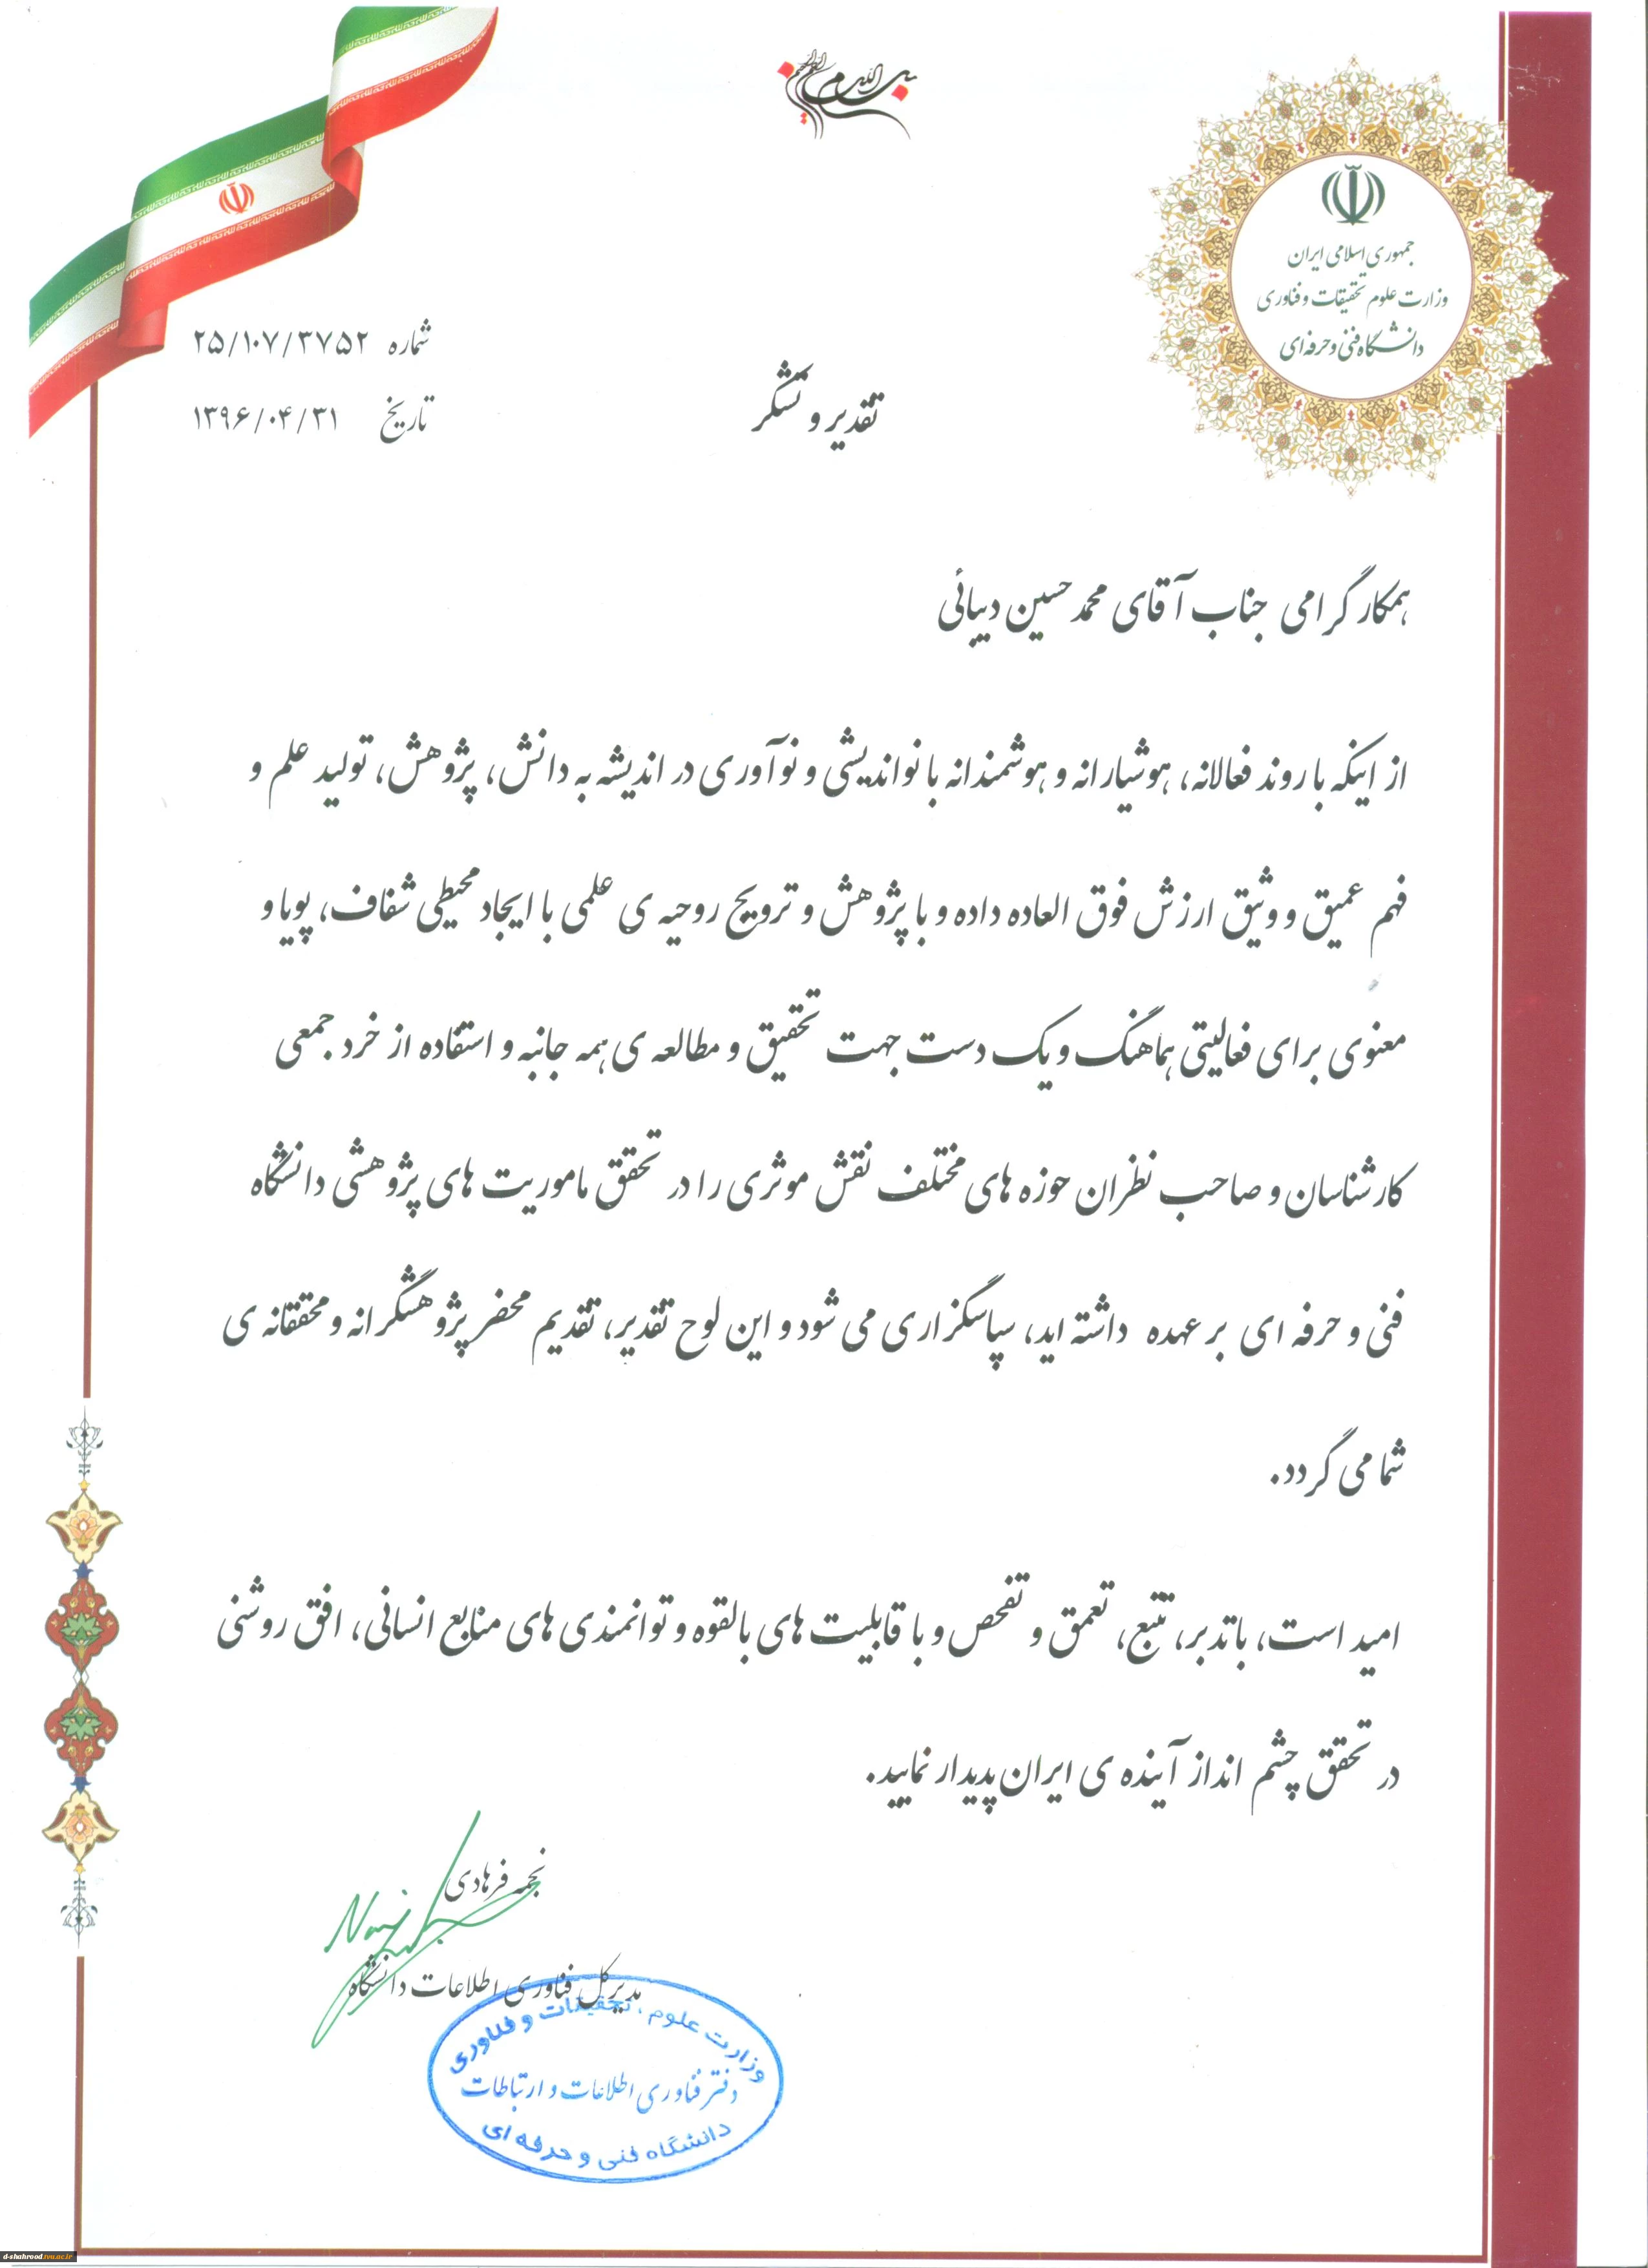 بسم الله الرحمن الرحیم
جمهوری اسلامی ایران
وزارت علوم تحقیقات و فناوری
دانشگاه فنی و حرفه ای
شماره ۲۵/۱۰۷/۳۷۵۲
تاریخ ۱۳۹۶/۰۴/۳۱
تقدیر و تشکر
همکار گرامی جناب آقای محمد حسین دیبائی
از اینکه با روند فعالانه، هوشیارانه و هوشمندانه با نواندیشی و نوآوری در اندیشه به دانش، پژوهش، تولید علم و
فهم عمیق و وثیق ارزش فوق العاده داده و با پژوهش و ترویج روحیه ی علمی با ایجاد محیطی شفاف، پویا و
معنوی برای فعالیتی هماهنگ و یک دست جهت تحقیق و مطالعه ی همه جانبه و استفاده از خرد جمعی
کارشناسان و صاحب نظران حوزه های مختلف نقش موثری را در تحقق ماموریت های پژوهشی دانشگاه
فنی و حرفه ای بر عهده داشته اید، سپاسگزاری می شود و این لوح تقدیر، تقدیم محضر پژوهشگرانه و محققانه ی
شما می گردد.
امید است، با تدبر، تتبع، تعمق و تفحص و با قابلیت های بالقوه و توانمندی های منابع انسانی، افق روشنی
در تحقق چشم انداز آینده ی ایران پدیدار نمایید.
نجمه فرهادی
مدیر کل فناوری اطلاعات دانشگاه
وزارت علوم، تحقیقات و فناوری
دفتر فناوری اطلاعات و ارتباطات
دانشگاه فنی و حرفه ای
d-shahrood.tvu.ac.ir